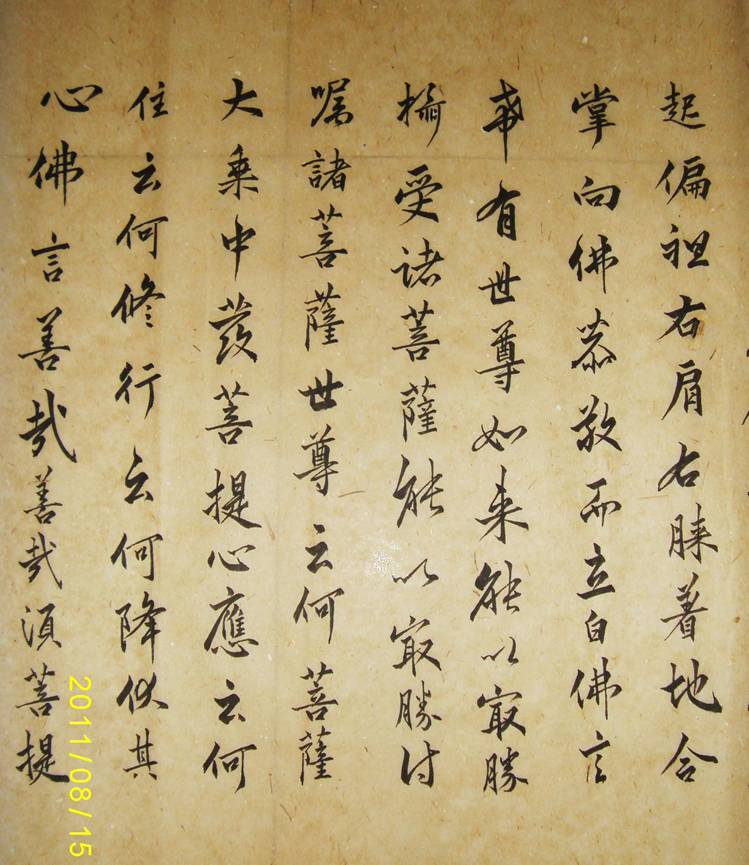 起偏袒右肩右膝着地合
掌向佛恭敬而立白佛言
希有世尊如来能以㝡勝
攝受诸菩薩能以㝡勝付
嘱諸菩薩世尊云何菩薩
大乘中發菩提心應云何
住云何修行云何降伏其
心佛言善哉善哉須菩提
2011/08/15